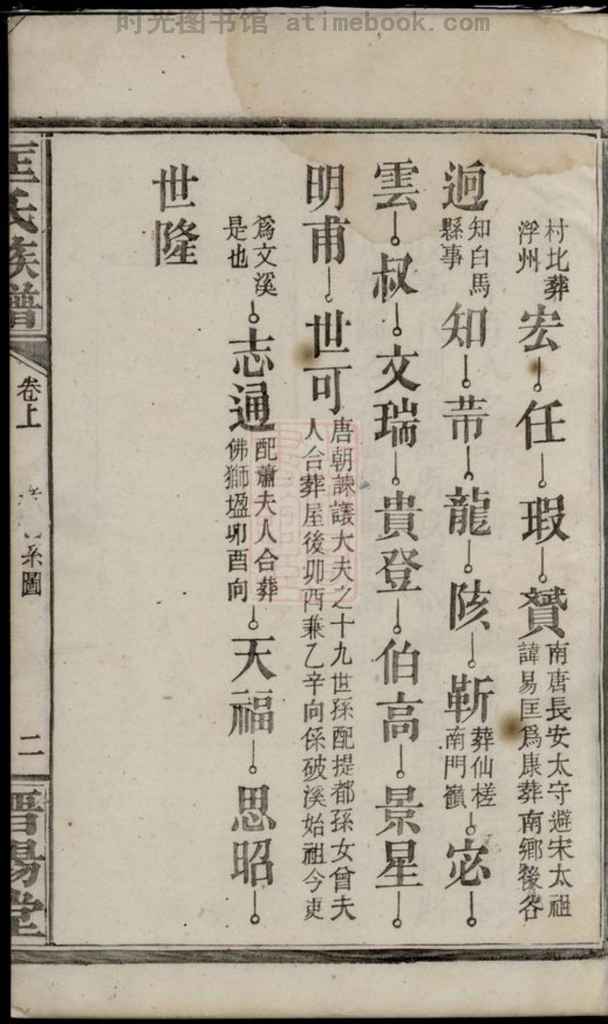 时光图书馆 atimebook.com
村北葬浮州 宏 任 瑕 贇 南唐長安太守避宋太祖諱易匡爲康葬南鄉後谷
逈 知白馬縣事 知 芾 龍 陔 靳 葬仙槎南門嶺 宓
雲 叔 文瑞 貴登 伯高 景星
明甫 世可 唐朝諫議大夫之十九世孫配提都孫女曾夫人合葬屋後卯酉兼乙辛向係破溪始祖今吏
爲文溪是也 志通 配蕭夫人合葬佛獅塭卯酉向 天福 思昭
世隆
匡氏族譜 卷上 系圖 二 晉陽堂